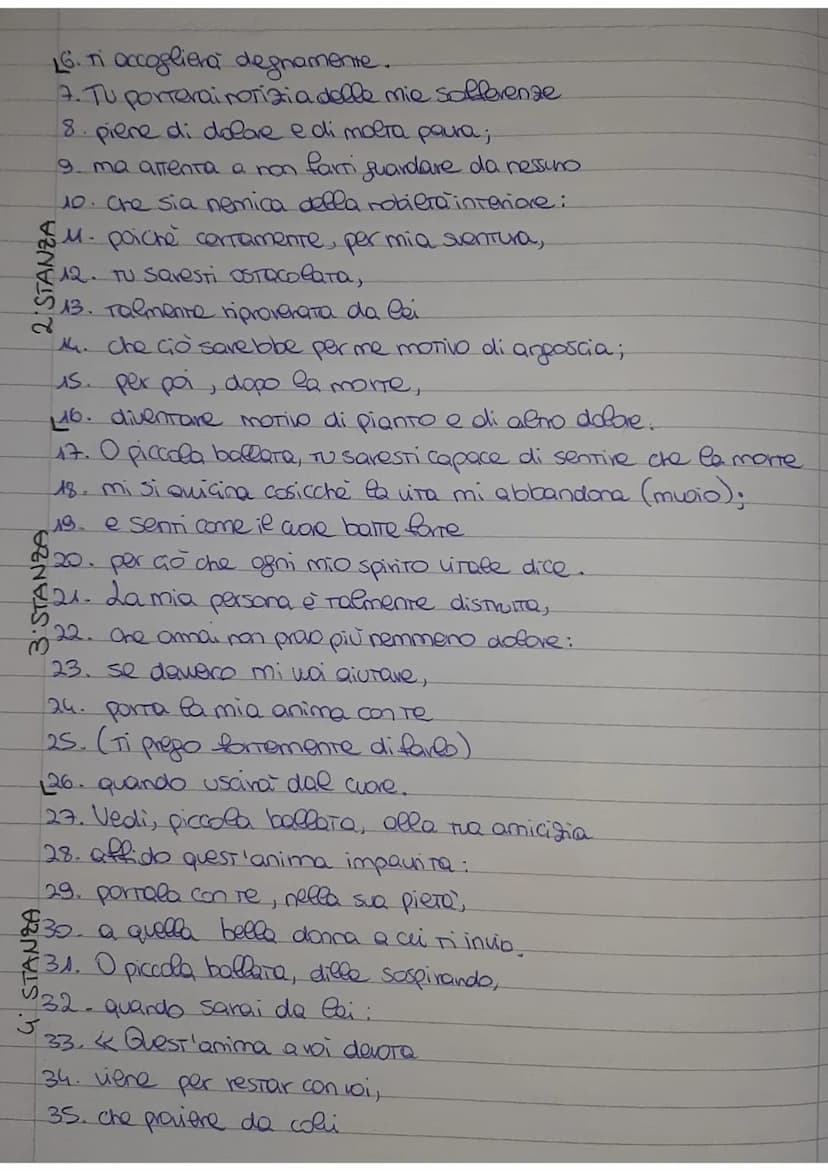 6. Ti accoglierà degnamente.
7. Tu porterai notizia delle mie sofferenze
8. piene di dolore e di molta paura;
9. ma attenta a non farti guardare da nessuno
10. che sia nemica della nobiltà interiore:
11. poiché certamente, per mia sventura,
12. tu saresti ostacolata,
2° STANZA
13. talmente riproverata da lei
14. che ciò sarebbe per me motivo di angoscia;
15. per poi, dopo la morte,
16. diventare motivo di pianto e di altro dolore.
17. O piccola ballata, tu saresti capace di sentire che la morte
18. mi si avvicina cosicché la vita mi abbandona (muoio);
19. e senti come il cuore batte forte
20. per ciò che ogni mio spirito vitale dice.
3° STANZA
21. La mia persona è talmente distrutta,
22. che ormai non provo più nemmeno dolore:
23. se davvero mi vuoi aiutare,
24. porta la mia anima con te
25. (Ti prego fortemente di farlo)
26. quando uscirà dal cuore.
27. Vedi, piccola ballata, alla tua amicizia
28. affido quest'anima impaurita:
29. portala con te, nella sua pietà,
30. a quella bella donna a cui ti invio.
4° STANZA
31. O piccola ballata, dille sospirando,
32. quando sarai da lei:
33. « Quest'anima a voi devota
34. viene per restar con voi,
35. che proviene da colui